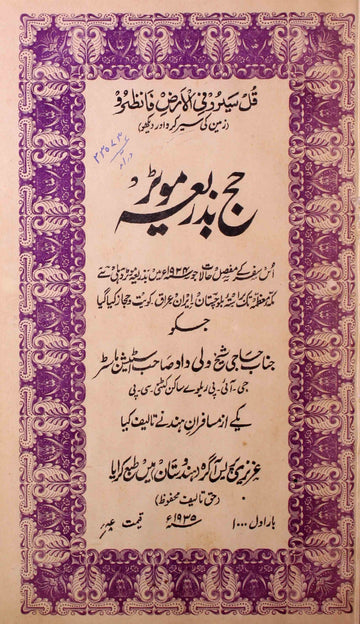 قل سیروا فی الارض فانظروا
(زمین کی سیر کرو اور دیکھو)
حج بذریعہ موٹر
اس سفر کے مفصل حالات جو ۱۹۳۴ء میں بذریعہ موٹر دہلی سے
مکہ معظمہ تک براستہ بلوچستان ایران عراق، کویت و حجاز کیا گیا
جسکو
جناب حاجی شیخ ولی داد صاحب اسٹیشن ماسٹر
جی۔ آئی۔ پی ریلوے ساکن کٹنی سی۔ پی
یکے از مسافران ہند نے تالیف کیا
عزیزی پریس آگرہ ہندوستان میں طبع کرایا
(حق تالیف محفوظ)
بار اول ۱۰۰۰ ۱۹۳۵ء قیمت